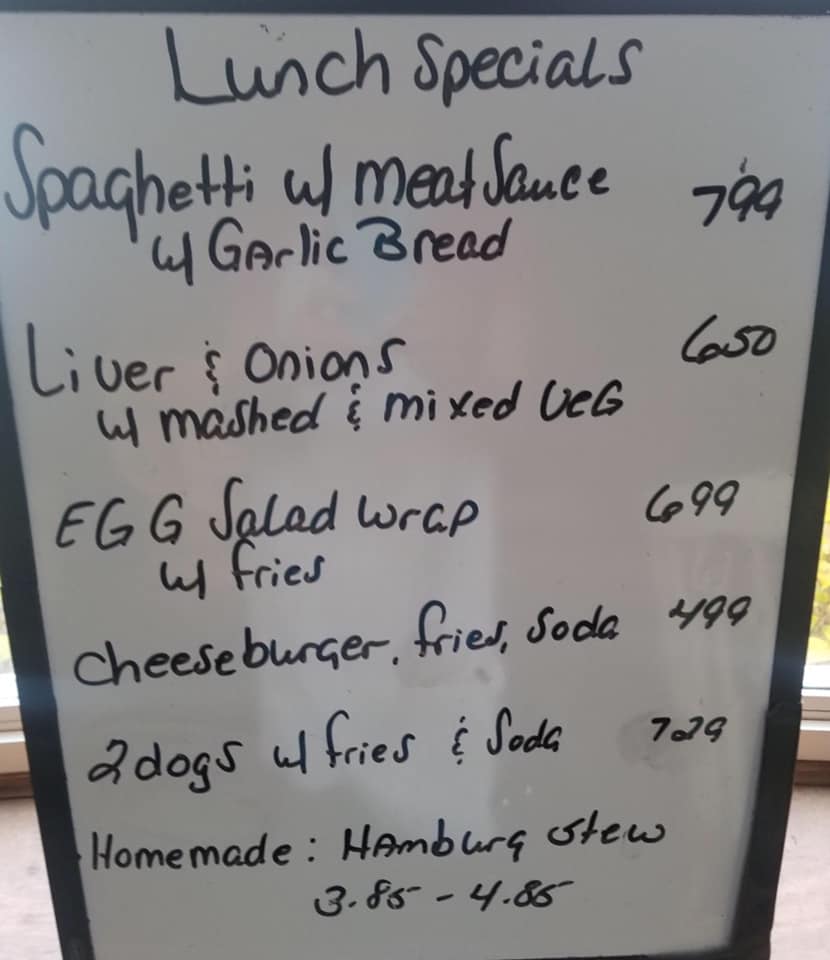 Lunch Specials
Spaghetti w/ meat Sauce 799
w/ Garlic Bread
Liver & Onions 650
w/ mashed & mixed VeG
EGG Salad wrap 699
w/ fries
cheeseburger, fries, Soda 499
2 dogs w/ fries & Soda 729
Homemade: Hamburg stew
3.85 - 4.85